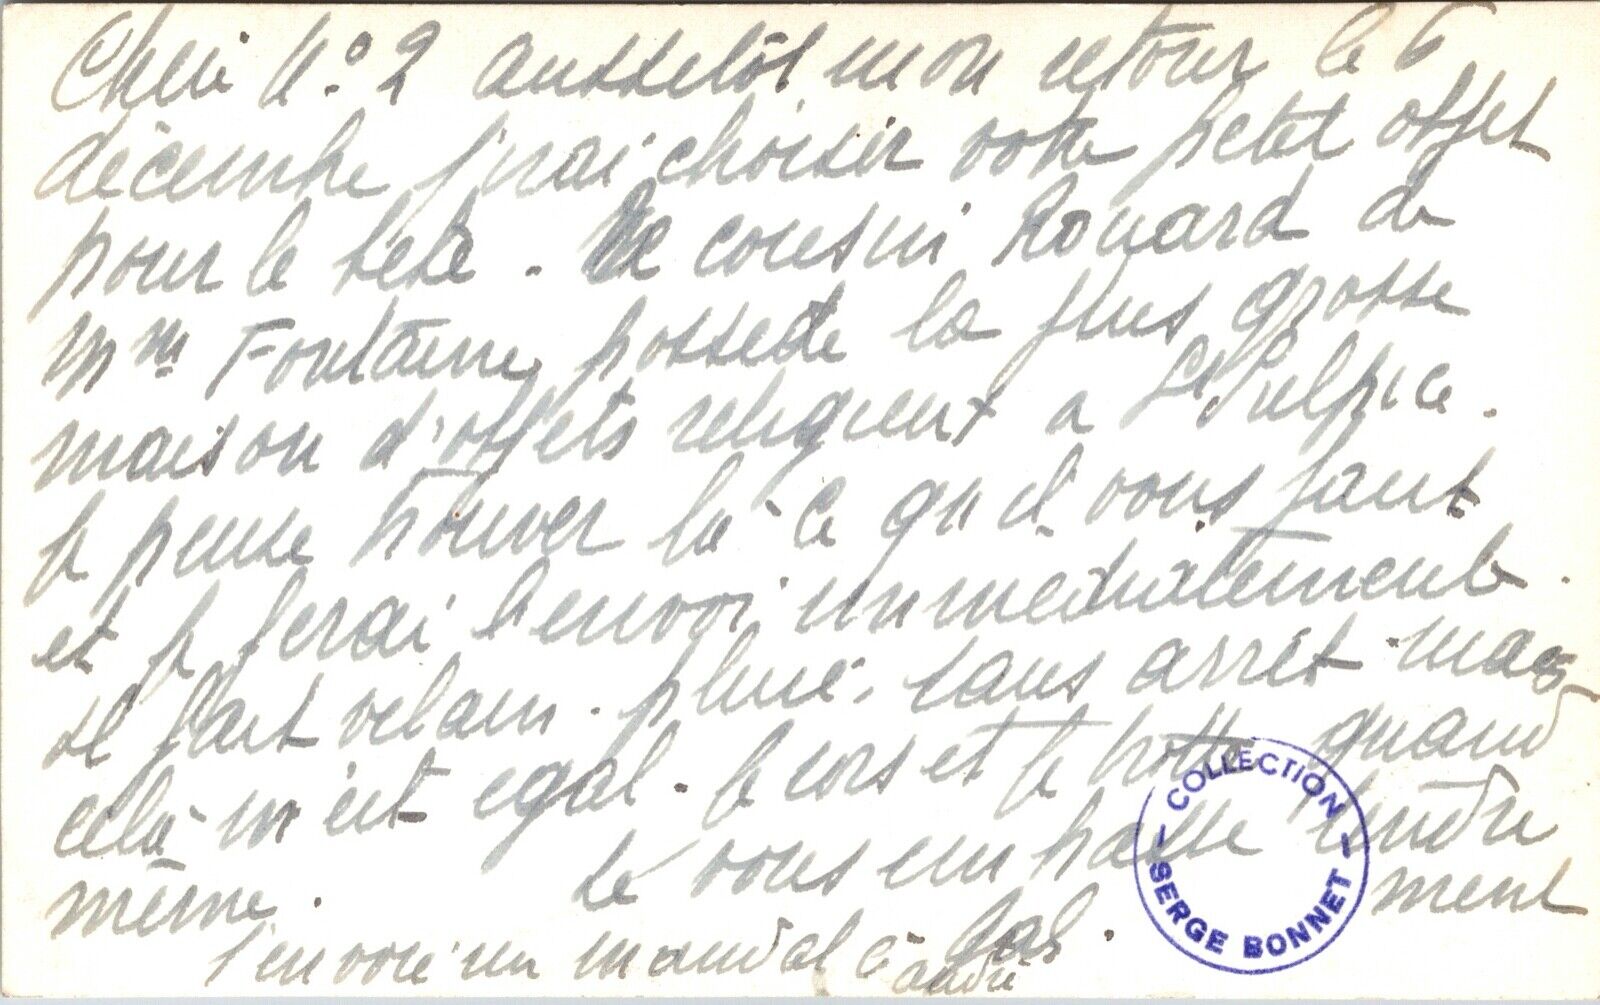 Cheri N° 2 aussitôt mon retour le 6
décembre j'irai choisir votre petit objet
pour le bébé. Le cousin Rouard de
Mme Fontaine possede la plus grosse
maison d'objets religieux a St Sulpice.
Je pense trouver là ce qu'il vous faut
et je ferai l'envoi immediatement.
il fait vilain. pluie, sans arret. mais
cela m'est egal. je sors et je trotte quand
même. Je vous embrasse tendre
ment
J'envoie un mandat à
André
COLLECTION
SERGE BONNET